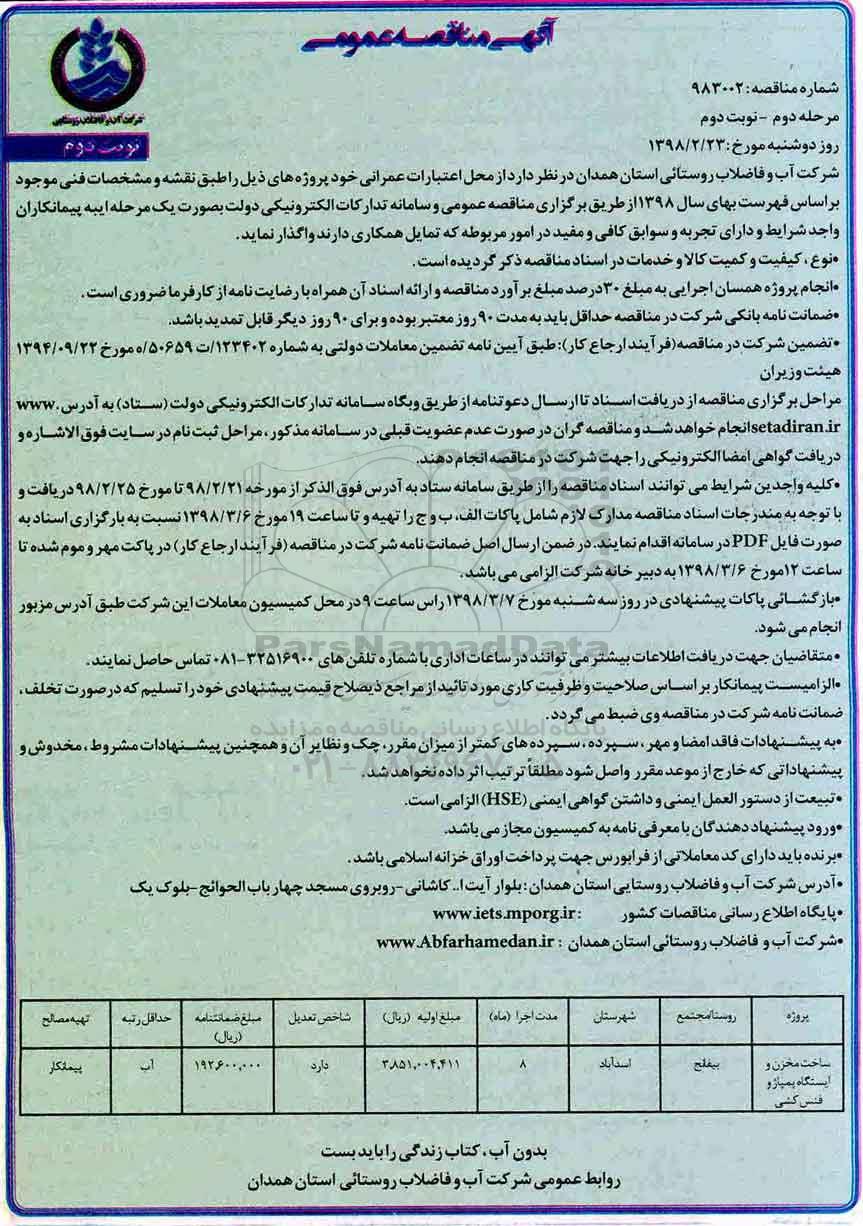 آگهی مناقصه عمومی
شرکت آب و فاضلاب روستایی
نوبت دوم
شماره مناقصه: ۹۸۳۰۰۲
مرحله دوم - نوبت دوم
روز دوشنبه مورخ: ۱۳۹۸/۲/۲۳
شرکت آب و فاضلاب روستائی استان همدان در نظر دارد از محل اعتبارات عمرانی خود پروژه های ذیل را طبق نقشه و مشخصات فنی موجود
براساس فهرست بهای سال ۱۳۹۸ از طریق برگزاری مناقصه عمومی و سامانه تدارکات الکترونیکی دولت بصورت یک مرحله ایبه پیمانکاران
واجد شرایط و دارای تجربه و سوابق کافی و مفید در امور مربوطه که تمایل همکاری دارند واگذار نماید.
•نوع ، کیفیت و کمیت کالا و خدمات در اسناد مناقصه ذکر گردیده است.
•انجام پروژه همسان اجرایی به مبلغ ۳۰درصد مبلغ برآورد مناقصه و ارائه اسناد آن همراه با رضایت نامه از کارفرما ضروری است .
•ضمانت نامه بانکی شرکت در مناقصه حداقل باید به مدت ۹۰ روز معتبر بوده و برای ۹۰ روز دیگر قابل تمدید باشد.
•تضمین شرکت در مناقصه(فرآیند ارجاع کار): طبق آیین نامه تضمین معاملات دولتی به شماره ۱۲۳۴۰۲/ت ۵۰۶۵۹/ه مورخ ۱۳۹۴/۰۹/۲۲
هیئت وزیران
مراحل برگزاری مناقصه از دریافت اسناد تا ارسال دعوتنامه از طریق وبگاه سامانه تدارکات الکترونیکی دولت (ستاد) به آدرس www.
setadiran.ir انجام خواهد شد و مناقصه گران در صورت عدم عضویت قبلی در سامانه مذکور، مراحل ثبت نام در سایت فوق الاشاره و
دریافت گواهی امضا الکترونیکی را جهت شرکت در مناقصه انجام دهند.
•کلیه واجدین شرایط می توانند اسناد مناقصه را از طریق سامانه ستاد به آدرس فوق الذکر از مورخه ۹۸/۲/۲۱ تا مورخ ۹۸/۲/۲۵ دریافت و
با توجه به مندرجات اسناد مناقصه مدارک لازم شامل پاکات الف، ب و ج را تهیه و تا ساعت ۱۹ مورخ ۱۳۹۸/۳/۶ نسبت به بارگزاری اسناد به
صورت فایل PDF در سامانه اقدام نمایند. در ضمن ارسال اصل ضمانت نامه شرکت در مناقصه (فرآیند ارجاع کار) در پاکت مهر و موم شده تا
ساعت ۱۲مورخ ۱۳۹۸/۳/۶ به دبیر خانه شرکت الزامی می باشد.
•بازگشائی پاکات پیشنهادی در روز سه شنبه مورخ ۱۳۹۸/۳/۷ راس ساعت ۹ در محل کمیسیون معاملات این شرکت طبق آدرس مزبور
انجام می شود.
•متقاضیان جهت دریافت اطلاعات بیشتر می توانند در ساعات اداری با شماره تلفن های ۳۲۵۱۶۹۰۰-۰۸۱ تماس حاصل نمایند.
•الزامیست پیمانکار بر اساس صلاحیت و ظرفیت کاری مورد تائید از مراجع ذیصلاح قیمت پیشنهادی خود را تسلیم که در صورت تخلف ،
ضمانت نامه شرکت در مناقصه وی ضبط می گردد.
•به پیشنهادات فاقد امضا و مهر ، سپرده ، سپرده های کمتر از میزان مقرر، چک و نظایر آن و همچنین پیشنهادات مشروط ، مخدوش و
پیشنهاداتی که خارج از موعد مقرر واصل شود مطلقاً ترتیب اثر داده نخواهد شد.
•تبیعت از دستور العمل ایمنی و داشتن گواهی ایمنی (HSE) الزامی است.
•ورود پیشنهاد دهندگان با معرفی نامه به کمیسیون مجاز می باشد.
•برنده باید دارای کد معاملاتی از فرابورس جهت پرداخت اوراق خزانه اسلامی باشد .
•آدرس شرکت آب و فاضلاب روستایی استان همدان: بلوار آیت ا.. کاشانی -روبروی مسجد چهار باب الحوائج-بلوک یک
•پایگاه اطلاع رسانی مناقصات کشور : www.iets.mporg.ir
•شرکت آب و فاضلاب روستائی استان همدان : www.Abfarhamedan.ir
پروژه | روستا/مجتمع | شهرستان | مدت اجرا (ماه) | مبلغ اولیه (ریال) | شاخص تعدیل | مبلغ ضمانتنامه (ریال) | حداقل رتبه | تهیه مصالح
ساخت مخزن و ایستگاه پمپاژ و فنس کشی | بیفانج | اسدآباد | ۸ | ۳,۸۵۱,۰۰۴,۴۱۱ | دارد | ۱۹۲,۶۰۰,۰۰۰ | آب | پیمانکار
بدون آب ، کتاب زندگی را باید بست
روابط عمومی شرکت آب و فاضلاب روستائی استان همدان
ParsNamadData
پایگاه اطلاع رسانی مناقصه و مزایده